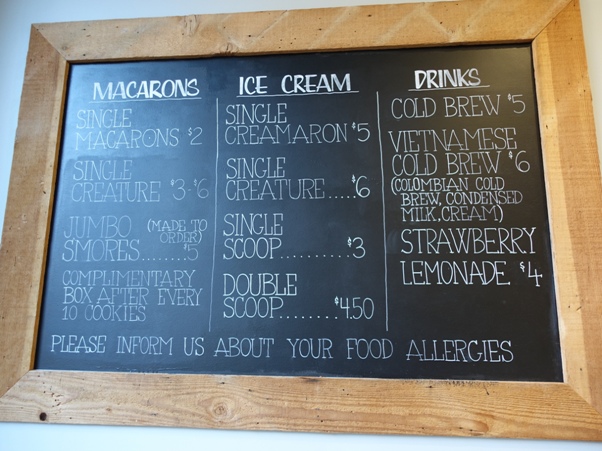 MACARONS
SINGLE
MACARONS $2
SINGLE
CREATURE $3-$6
JUMBO (MADE TO
ORDER)
SMORES........$5
COMPLIMENTARY
BOX AFTER EVERY
10 COOKIES
ICE CREAM
SINGLE
CREAMARON $5
SINGLE
CREATURE.....$6
SINGLE
SCOOP..........$3
DOUBLE
SCOOP........$4.50
DRINKS
COLD BREW $5
VIETNAMESE
COLD BREW $6
(COLOMBIAN COLD
BREW, CONDENSED
MILK, CREAM)
STRAWBERRY
LEMONADE $4
PLEASE INFORM US ABOUT YOUR FOOD ALLERGIES